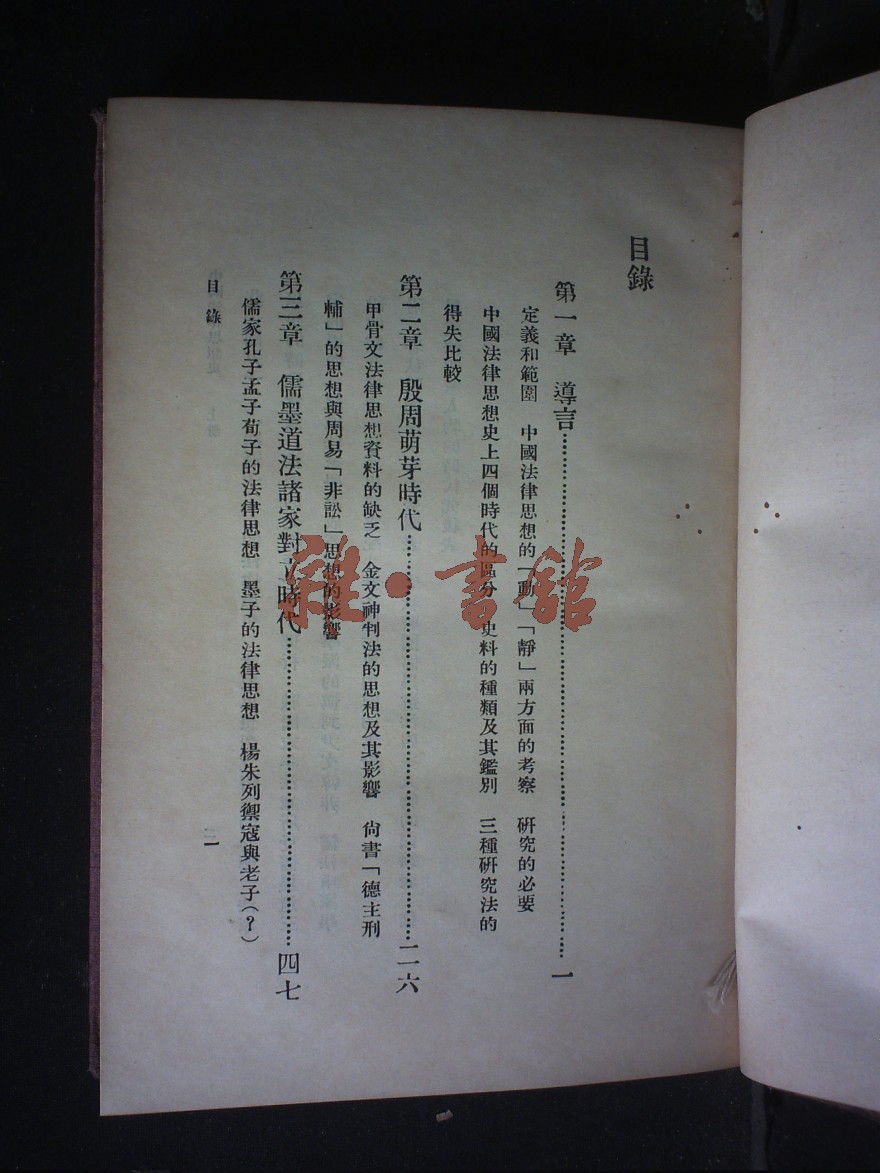 目錄
第一章 導言……………………………………一
定義和範圍 中國法律思想的「動」「靜」兩方面的考察 研究的必要
中國法律思想史上四個時代的區分 史料的種類及其鑑別 三種研究法的
得失比較
第二章 殷周萌芽時代……………………………………二六
甲骨文法律思想資料的缺乏 金文神判法的思想及其影響 尚書「德主刑
輔」的思想與周易「非訟」思想的影響
第三章 儒墨道法諸家對立時代……………………………………四七
儒家孔子孟子荀子的法律思想 墨子的法律思想 楊朱列禦寇與老子(？)
目錄 一
雜·書館